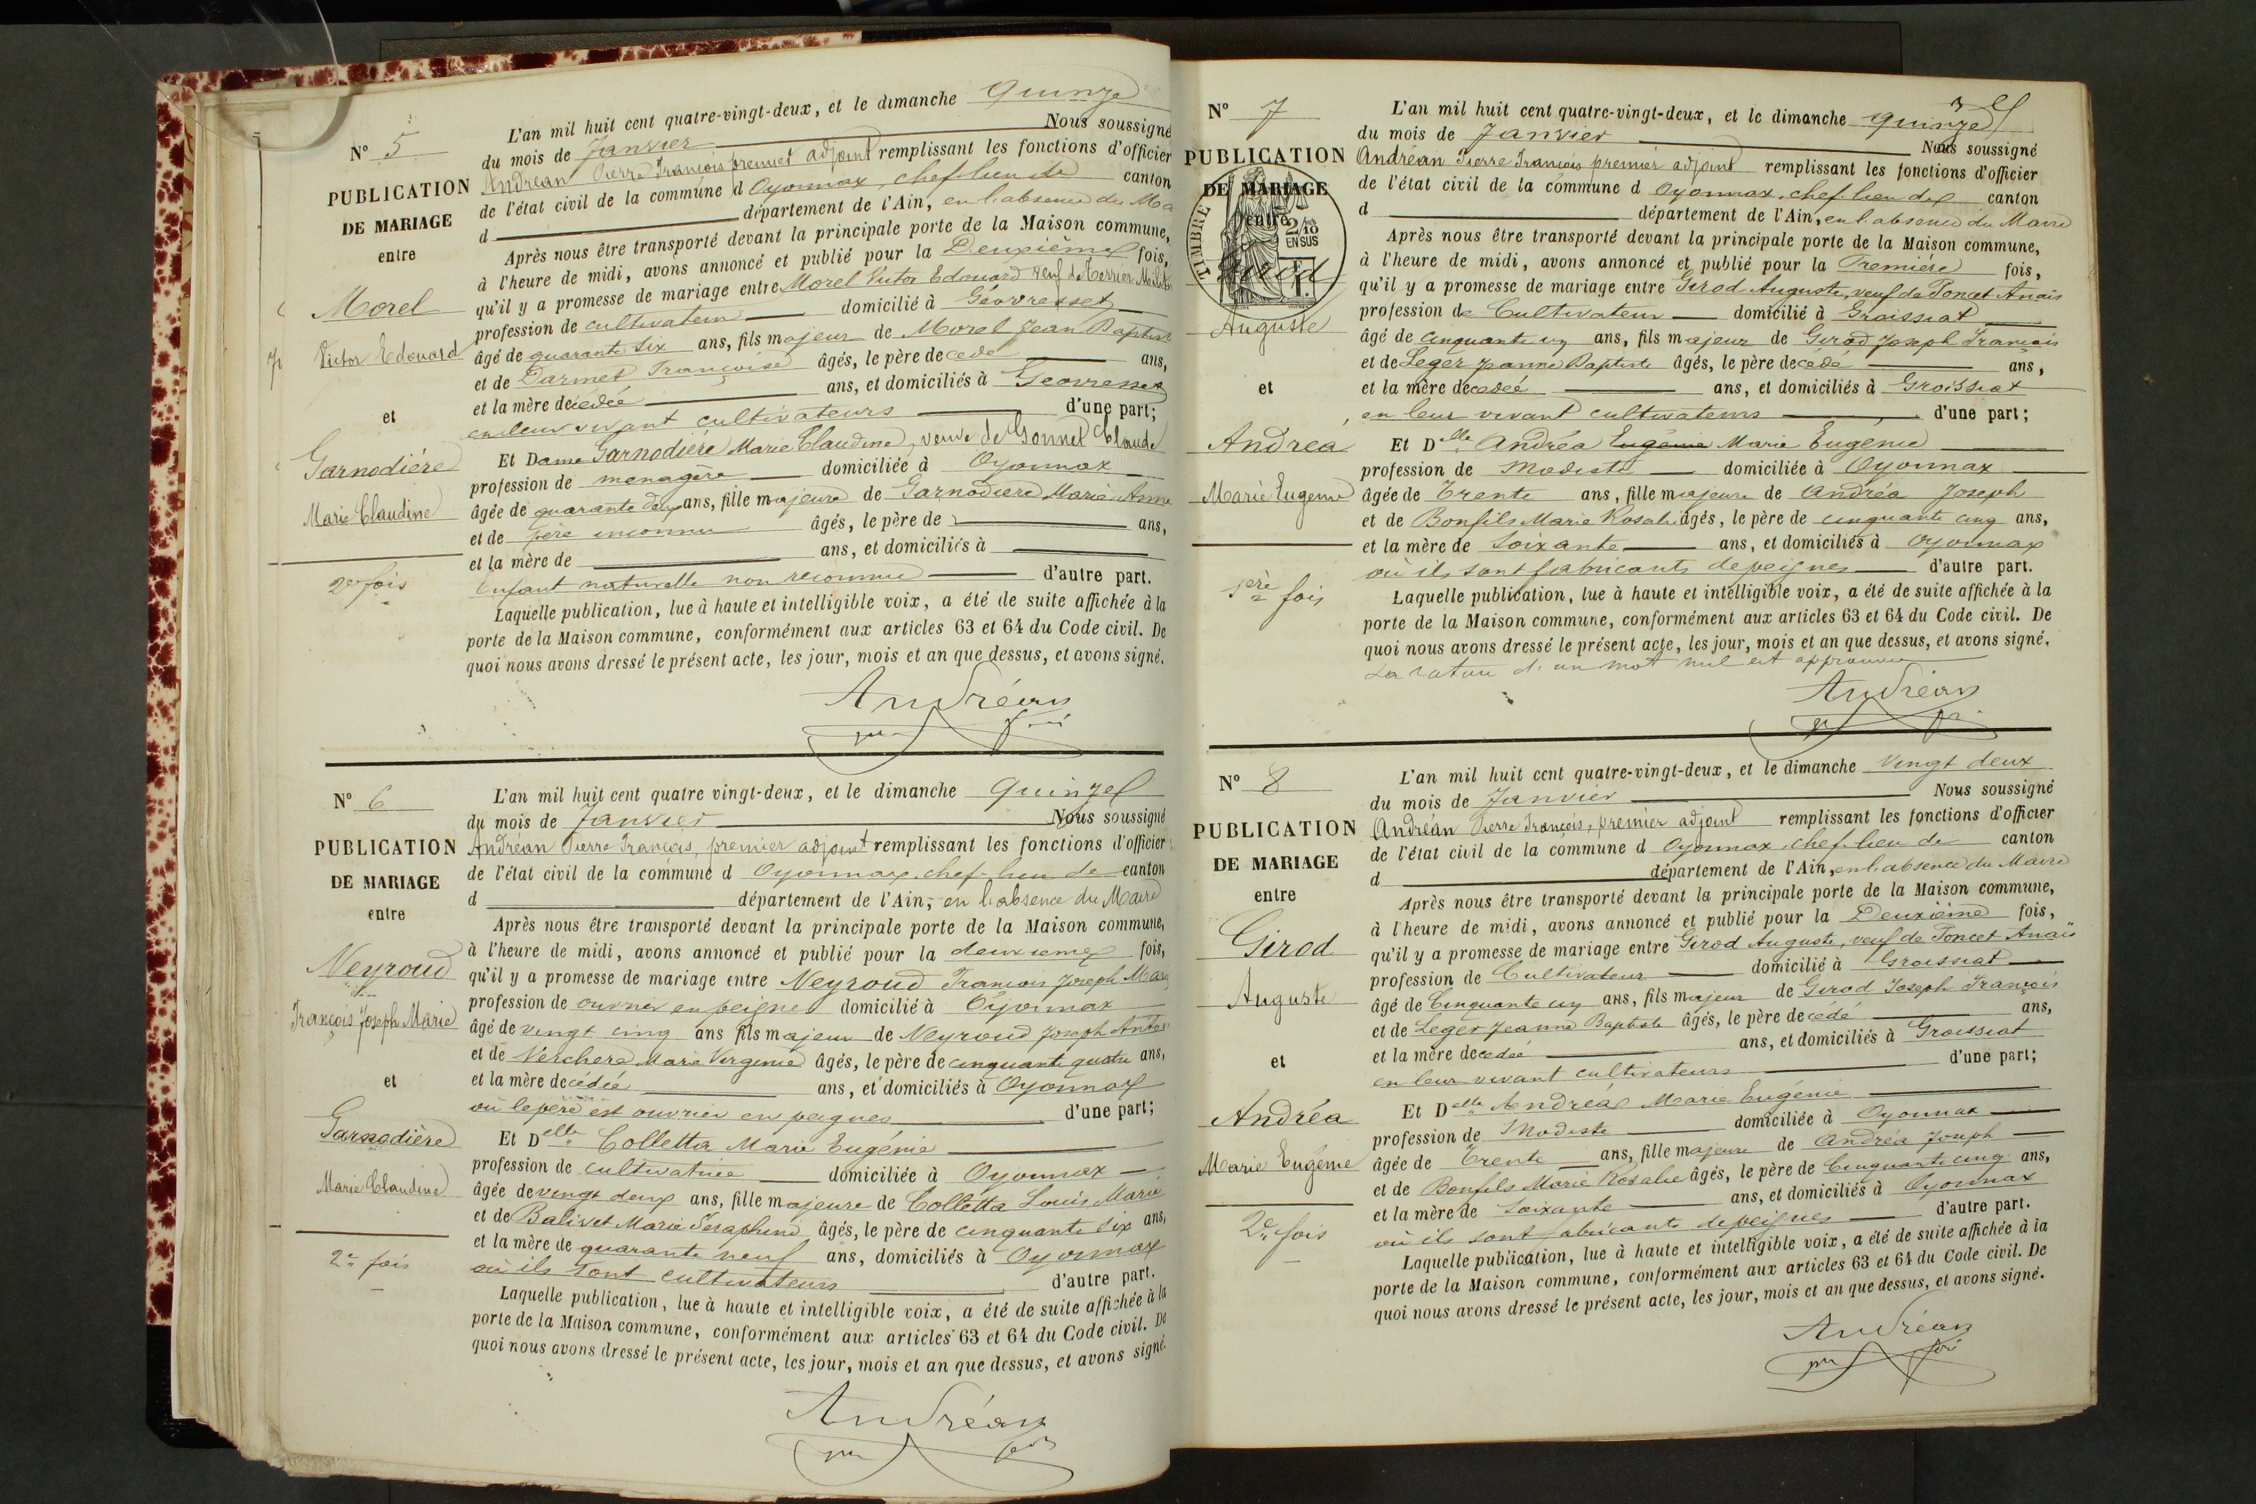 N° 5
PUBLICATION
DE MARIAGE
entre
Morel
Victor Edouard
et
Garnodière
Marie Claudine
2e fois
L'an mil huit cent quatre-vingt-deux, et le dimanche quinze
du mois de Janvier Nous soussigné
Andréan Pierre François premier adjoint remplissant les fonctions d'officier
de l'état civil de la commune d Oyonnax, chef lieu de canton
d département de l'Ain, en l'absence du Ma
Après nous être transporté devant la principale porte de la Maison commune,
à l'heure de midi, avons annoncé et publié pour la Deuxième fois,
qu'il y a promesse de mariage entre Morel Victor Edouard veuf de
profession de cultivateur domicilié à Géovresset
âgé de quarante six ans, fils majeur de Morel Jean Baptist
et de Darmet Françoise âgés, le père decédé ans,
et la mère décédée ans, et domiciliés à Géovresset
en leur vivant cultivateurs d'une part;
Et Dame Garnodière Marie Claudine, veuve de Gonnet Claude
profession de menagère domiciliée à Oyonnax
âgée de quarante deux ans, fille majeure de Garnodière Marie Anne
et de père inconnu âgés, le père de ans,
et la mère de ans, et domiciliés à
Enfant naturelle non reconnue d'autre part.
Laquelle publication, lue à haute et intelligible voix, a été de suite affichée à la
porte de la Maison commune, conformément aux articles 63 et 64 du Code civil. De
quoi nous avons dressé le présent acte, les jour, mois et an que dessus, et avons signé.
Andréan
N° 6
PUBLICATION
DE MARIAGE
entre
Neyroud
François Joseph Marie
et
Garnodière
Marie Claudine
2e fois
L'an mil huit cent quatre vingt-deux, et le dimanche quinze
du mois de Janvier Nous soussigné
Andréan Pierre François, premier adjoint remplissant les fonctions d'officier
de l'état civil de la commune d Oyonnax, chef-lieu de canton
d département de l'Ain, en l'absence du Maire
Après nous être transporté devant la principale porte de la Maison commune,
à l'heure de midi, avons annoncé et publié pour la deuxieme fois,
qu'il y a promesse de mariage entre Neyroud François Joseph Marie
profession de ouvrier en peignes domicilié à Oyonnax
âgé de vingt cinq ans fils majeur de Neyroud Joseph Antoi
et de Verchere Marie Virginie âgés, le père de cinquante quatre ans,
et la mère decédée ans, et domiciliés à Oyonnax
où le père est ouvrier en peignes d'une part;
Et Delle Colletta Marie Eugénie
profession de cultivatrice domiciliée à Oyonnax
âgée de vingt deux ans, fille majeure de Colletta Louis Marie
et de Balivet Marie Séraphine âgés, le père de cinquante six ans,
et la mère de quarante neuf ans, domiciliés à Oyonnax
où ils sont cultivateurs d'autre part.
Laquelle publication, lue à haute et intelligible voix, a été de suite affichée à la
porte de la Maison commune, conformément aux articles 63 et 64 du Code civil. De
quoi nous avons dressé le présent acte, les jour, mois et an que dessus, et avons signé.
Andréan
N° 7
PUBLICATION
DE MARIAGE
entre
TIMBRE
2/10
EN SUS
Girod
Auguste
et
Andréa
Marie Eugénie
1ère fois
3
L'an mil huit cent quatre-vingt-deux, et le dimanche quinze
du mois de Janvier Nous soussigné
Andréan Pierre François premier adjoint remplissant les fonctions d'officier
de l'état civil de la commune d Oyonnax, chef-lieu de canton
d département de l'Ain, en l'absence du Maire
Après nous être transporté devant la principale porte de la Maison commune,
à l'heure de midi, avons annoncé et publié pour la Première fois,
qu'il y a promesse de mariage entre Girod Auguste, veuf de Poncet Anaïs
profession de Cultivateur domicilié à Groissiat
âgé de cinquante un ans, fils majeur de Girod Joseph François
et de Leger Jeanne Baptiste âgés, le père decédé ans,
et la mère decedeé ans, et domiciliés à Groissiat
en leur vivant cultivateurs d'une part;
Et Delle Andréa Eugénie Marie Eugénie
profession de Modiste domiciliée à Oyonnax
âgée de Trente ans, fille majeure de Andréa Joseph
et de Bonfils Marie Rosalie âgés, le père de cinquante cinq ans,
et la mère de Soixante ans, et domiciliés à Oyonnax
où ils sont fabricants de peignes d'autre part.
Laquelle publication, lue à haute et intelligible voix, a été de suite affichée à la
porte de la Maison commune, conformément aux articles 63 et 64 du Code civil. De
quoi nous avons dressé le présent acte, les jour, mois et an que dessus, et avons signé.
La rature d'un mot nul est approuvée
Andréan
N° 8
PUBLICATION
DE MARIAGE
entre
Girod
Auguste
et
Andréa
Marie Eugénie
2e fois
L'an mil huit cent quatre-vingt-deux, et le dimanche Vingt deux
du mois de Janvier Nous soussigné
Andréan Pierre François, premier adjoint remplissant les fonctions d'officier
de l'état civil de la commune d Oyonnax, chef-lieu de canton
d département de l'Ain, en l'absence du Maire
Après nous être transporté devant la principale porte de la Maison commune,
à l'heure de midi, avons annoncé et publié pour la Deuxième fois,
qu'il y a promesse de mariage entre Girod Auguste, veuf de Poncet Anaïs
profession de Cultivateur domicilié à Groissiat
âgé de Cinquante un ans, fils majeur de Girod Joseph François
et de Leger Jeanne Baptiste âgés, le père decédé ans,
et la mère decedeé ans, et domiciliés à Groissiat
en leur vivant cultivateurs d'une part;
Et Delle Andréa Marie Eugénie
profession de Modiste domiciliée à Oyonnax
âgée de Trente ans, fille majeure de Andréa Joseph
et de Bonfils Marie Rosalie âgés, le père de Cinquante cinq ans,
et la mère de Soixante ans, et domiciliés à Oyonnax
où ils sont fabricants de peignes d'autre part.
Laquelle publication, lue à haute et intelligible voix, a été de suite affichée à la
porte de la Maison commune, conformément aux articles 63 et 64 du Code civil. De
quoi nous avons dressé le présent acte, les jour, mois et an que dessus, et avons signé.
Andréan